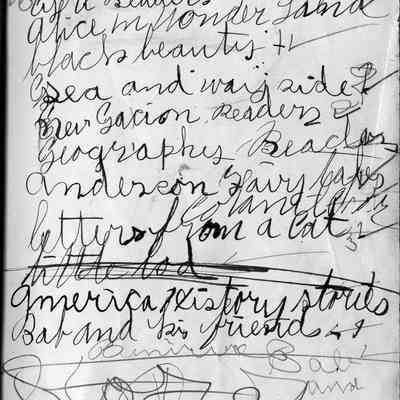 Alice in Wonder Land
black beauty
Sea and way side
New Gacion Readers
Geography Reader
Anderson Fairy tales
letters from a Cat
little lod
America history stories
Bab and his friends
and